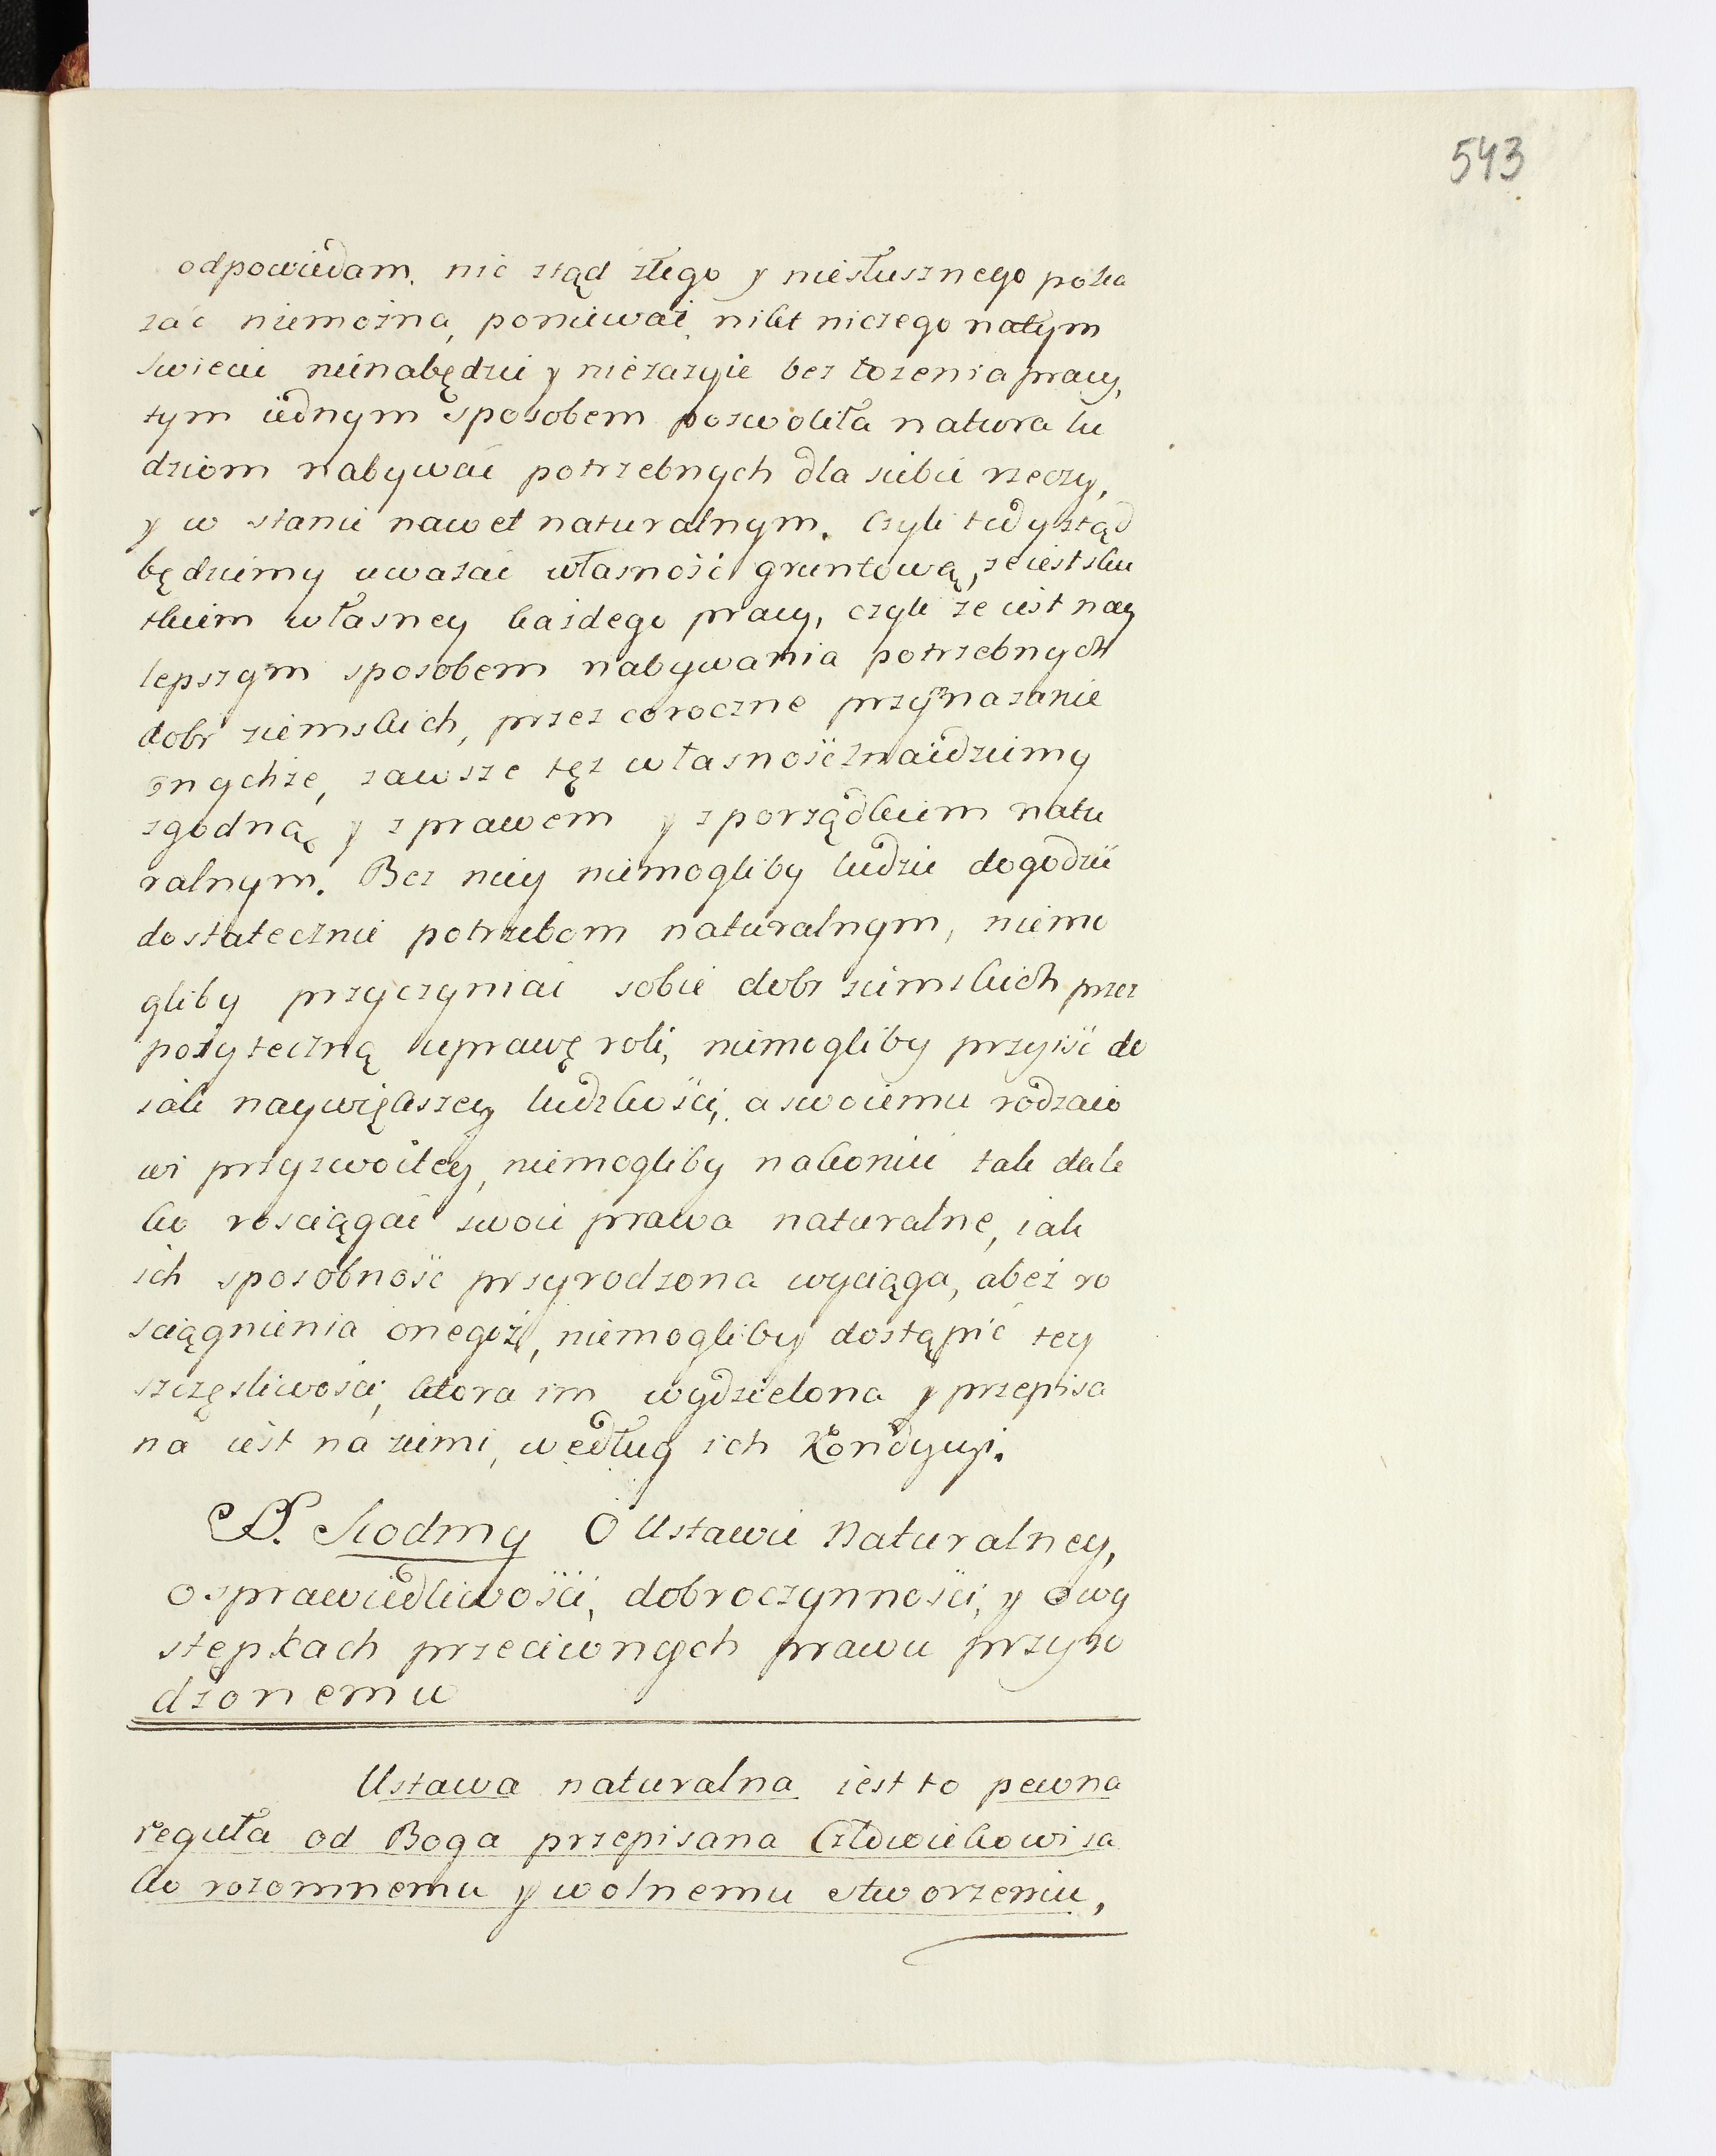 543
odpowiedam. nic ztąd złego y niesłusznego poka
zać niemożna, ponieważ nikt niczego natym
swiecie nienabędzie y niezażyie bez łożenia pracy,
tym iednym sposobem pozwoliła natura lu
dziom nabywać potrzebnych dla siebie rzeczy,
y w stanie nawet naturalnym. Czyli tedy ztąd
będziemy uważać własność gruntową, ze iest sku
tkiem własney każdego pracy, czyli że iest nay
lepszym sposobem nabywania potrzebnych
dobr ziemskich, przez coroczne przymnażanie
onychże, zawsze tęż własność znaidziemy
zgodną y z prawem y z porządkiem natu
ralnym. Bez niey niemogliby ludzie dogodzić
dostatecznie potrzebom naturalnym, niemo
gliby przyczyniać sobie dobr ziemskich przez
pożyteczną uprawę roli, niemogliby przyiść do
iak naywiększey ludzkości, a swoiemu rodzaio
wi przyzwoitey, niemogliby nakoniec tak dale
ko rosciągać swoie prawa naturalne, iak
ich sposobność przyrodzona wyciąga, a bez ro
sciągnienia onegoż, niemogliby dostąpić tey
szczęsliwości, ktora im wydzielona y przepisa
na iest na ziemi, według ich Kondycyi.
R. Siodmy O Ustawie Naturalney,
o sprawiedliwości, dobroczynności, y o wy
stępkach przeciwnych prawu przyro
dzonemu
Ustawa naturalna iest to pewna
reguła od Boga przepisana Człowiekowi ia
ko rozomnemu y wolnemu stworzeniu,